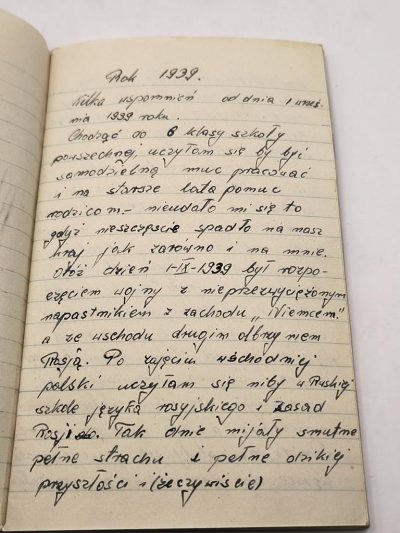 Rok 1939.
Kilka wspomnień od dnia 1 wrześ-
nia 1939 roku.
Chodząć do 6 klasy szkoły
powszechnej, uczyłam się by być
samodzielną muc pracować
i na starsze lata pomuc
rodzicom. - nieudało mi się to
gdyż nieszczęście spadło na nasz
kraj jak zarówno i na mnie.
Otóż dzień 1-IX-1939 był rozpo-
częciem wojny z nieprzezwyciężonym
napastnikiem z zachodu „Niemcem"
a ze wschodu drugim olbrzymem
Rosją. Po zajęciu wschodniej
polski uczyłam się niby w Ruskiej
szkole języka rosyjskiego i zasad
Rosji. Tak dnie mijały smutne
pełne strachu i pełne dzikiej
przyszłości i (rzeczywiście)